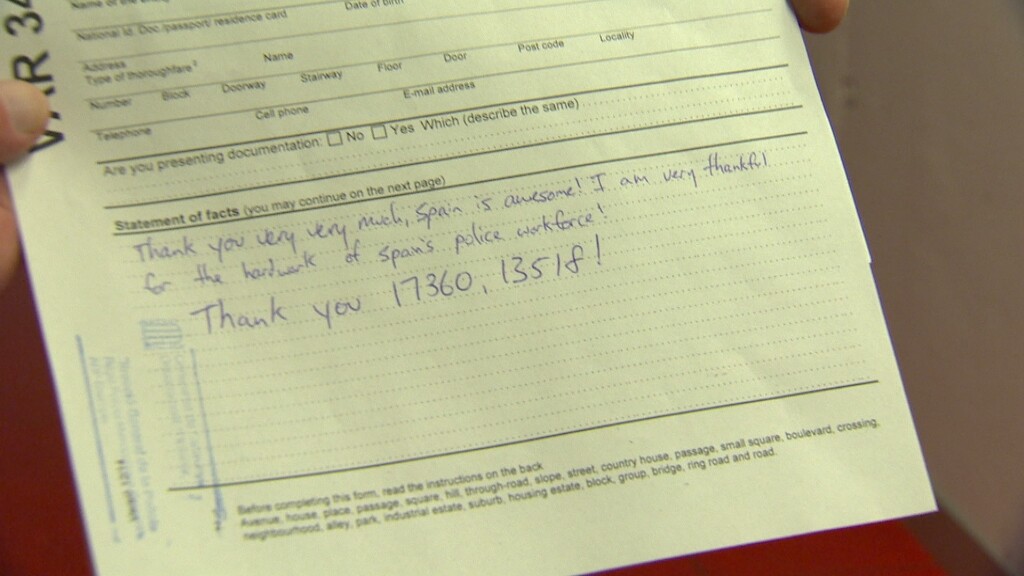 VAR 34
Name of the
National Id. Doc./passport/ residence card Date of birth
Address
Type of thoroughfare¹ Name
Number Block Doorway Stairway Floor Door Post code Locality
Telephone Cell phone E-mail address
Are you presenting documentation: No Yes Which (describe the same)
Statement of facts (you may continue on the next page)
Thank you very very much, Spain is awesome! I am very thankful
for the hardwork of Spain's police workforce!
Thank you 17360, 13518!
Before completing this form, read the instructions on the back
Avenue, house, place, passage, square, hill, through-road, slope, street, country house, passage, small square, boulevard, crossing,
neighbourhood, alley, park, industrial estate, suburb, housing estate, block, group, bridge, ring road and road.